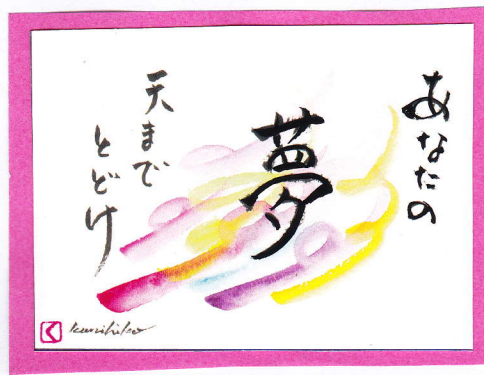 あなたの
夢
天まで
とどけ
く
kunihiko